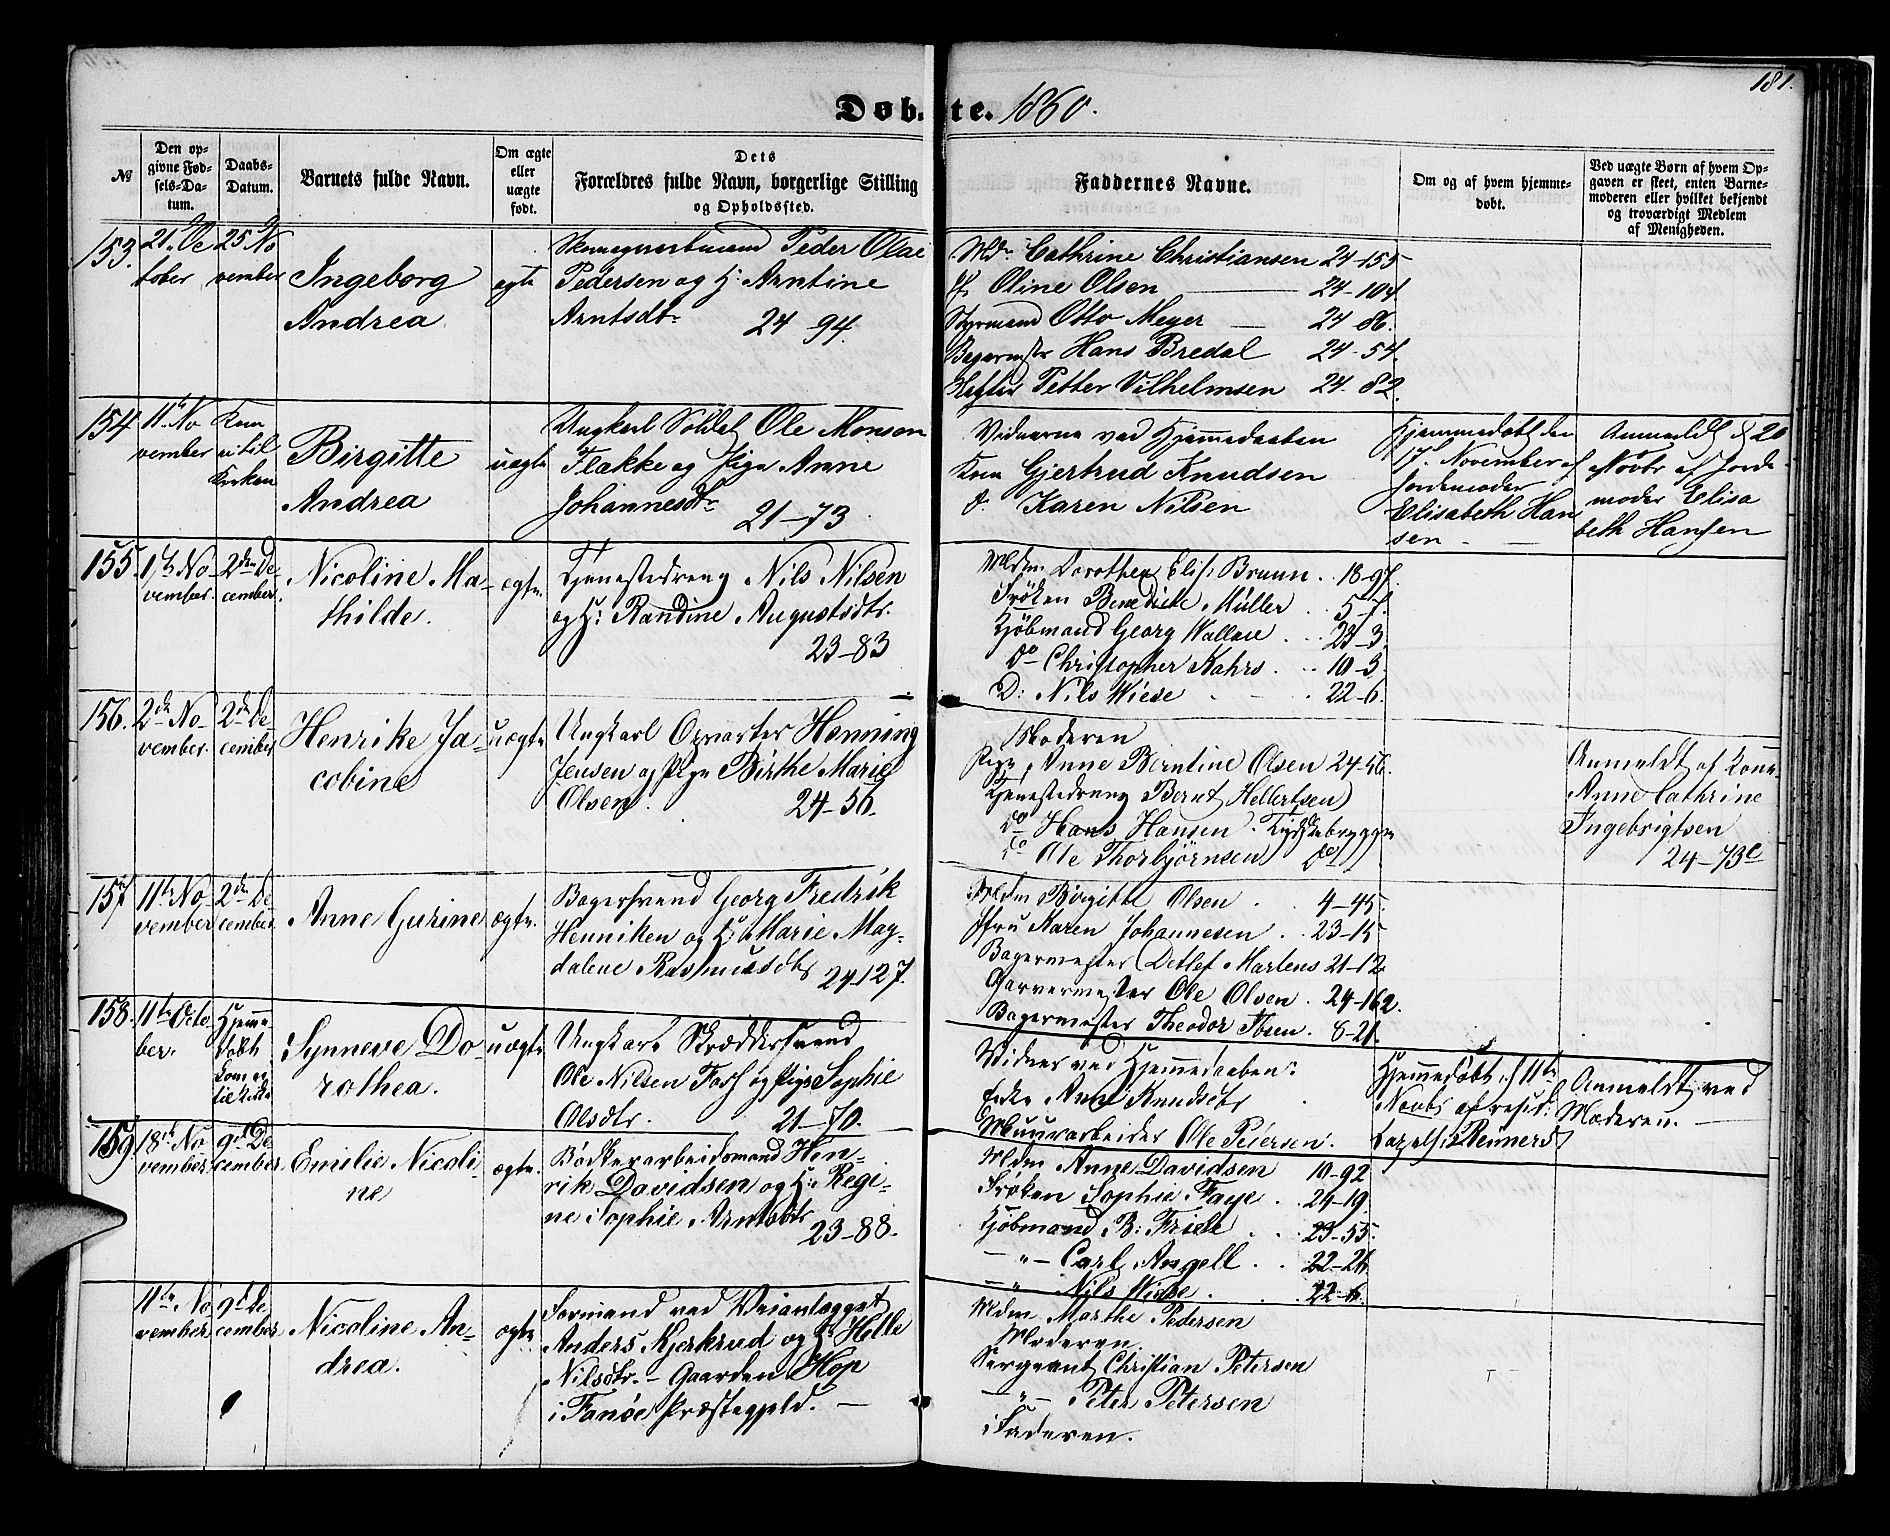 181.
Døbte. 1860.
№
Den opgivne Fødsels-Datum.
Daabs-Datum.
Barnets fulde Navn.
Om ægte eller uægte født.
Dets
Forældres fulde Navn, borgerlige Stilling
og Opholdssted.
Faddernes Navne.
Om og af hvem hjemmedøbt.
Ved uægte Børn af hvem Opgaven er skeet, enten Barnemoderen eller hvilket bekjendt og troværdigt Medlem af Menigheden.
153.
25 No
vember
Ingeborg
Andrea
ægte
Peder Olai
Pedersen og H: Arntine
Arntsdtr 24-94.
Mdm Cathrine Christiansen 24-155
Jf. Oline Olsen 24-104
Styrmand Otto Meyer 24-86.
Bagermstr Hans Bredal 24-54
Petter Vilhelmsen 24-82.
154
11te No
vember
Kom
ei til
Kirken
Birgitte
Andrea
uægte
Ungkarl Soldat Ole Monsen
Flække og Pige Anne
Johannesdtr 21-73
Vidnerne ved Hjemmedaaben
Kone Gjertrud Knudsen
do. Karen Nilsen
Hjemmedøbt den
17. November af
Jordemoder
Elisabeth Han
sen
Anmeldt d 20
Novbr af Jorde
moder Elisa
beth Hansen
155.
1ste No-
vember.
2den De-
cember.
Nicoline Ma-
thilde.
ægte.
Tjenestedreng Nils Nilsen
og H: Randine Augustsdtr.
23-83
Mdm Dorothea Elis: Bruun. 18-97.
Frøken Benedicte Müller 5-7.
Kjøbmand Georg Wallace 23-3
do Christopher Kahrs. 10-3.
D: Nils Wiese 22-6.
156.
2den No-
vember.
2den De-
cember
Henrike Ja-
cobine
uægte
Ungkarl Opvarter Henning
Jensen og Pige Birthe Marie
Olsen. 24-56.
Moderen
Pige Anne Berntine Olsen 24-56.
Tjenestedreng Bernt Hellertsen
do Hans Hansen. Tydskebryggen
do Ole Thorbjørnsen do
Anmeldt af Kone
Anne Cathrine
Ingebrigtsen
24-73c
157
11te No-
vember
2den De-
cember.
Anne Gurine
ægte.
Bagersvend Georg Fredrik
Henniken og H: Marie Mag-
dalene Rasmusdtr 24-127.
Mdm Birgitte Olsen 4-45.
Jfru Karen Johannesen. 23-15
Bagermester Detlef Martens 21-12
Garvermester Ole Olsen. 24-162.
Bagermester Theodor Ibsen. 8-21.
158.
11te Octo-
ber.
Hjemme
døbt
kom ei
til Kirke
Synneve Do-
rothea.
uægte
Ungkarl Skræddersvend
Ole Nilsen og Pige Sophie
Olsdtr. 21-70.
Vidner ved Hjemmedaaben:
Enke Anne Knudsdtr
Muurarbeider Ole Petersen.
Hjemmedøbt d 11te
Novbr af resid:
Kapel: Reimers
Anmeldt ved
Moderen.
159
18de No
vember
9de De-
cember
Emilie Nicoli-
ne
ægte.
Bødkerarbeidsmand Hen-
rik Davidsen og H: Regi-
ne Sophie Arntsdtr
23-88.
Mdm Anne Davidsen 10-92
Frøken Sophie Faye. 24-19.
Kjøbmand B: Friele 23-55.
-"- Carl Angell. 22-26
-"- Nils Wiese. 22-6.
11te No
vember
9de De-
cember
Nicoline An-
drea.
ægte
Formand ved Veianlægget
Anders Kjerkrud og H: Helle
Nilsdtr. - Gaarden Hop
i Fanøe Præstegjæld.
Mdm Marthe Pedersen
Moderen.
Sergeant Christian Petersen
-"- Peter Petersen
Faderen.